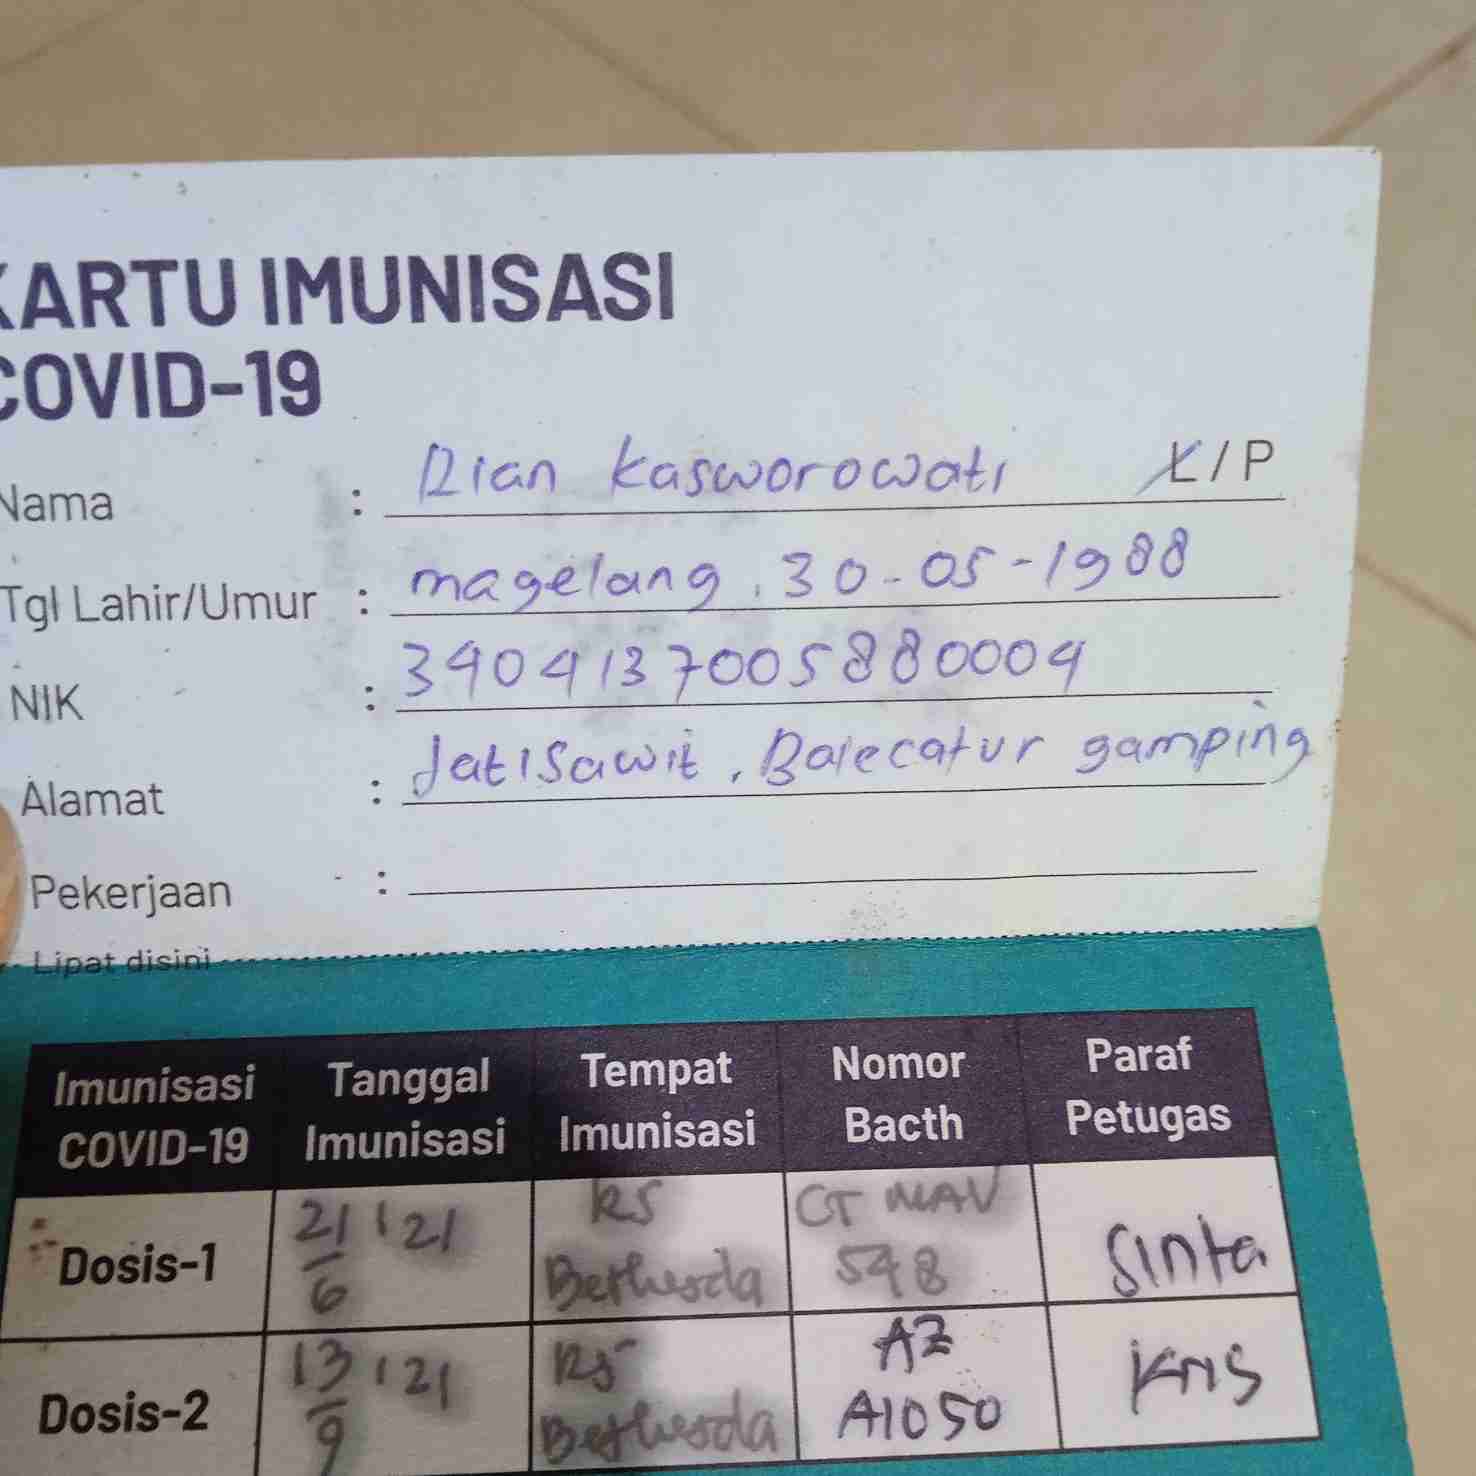 KARTU IMUNISASI
COVID-19
Nama : Dian Kasworowati L/P
Tgl Lahir/Umur : magelang, 30-05-1988
NIK : 3404137005880004
Alamat : Jatisawit, Balecatur gamping
Pekerjaan :
Lipat disini
Imunisasi COVID-19 Tanggal Imunisasi Tempat Imunisasi Nomor Bacth Paraf Petugas
Dosis-1 21/6 '21 RS Bethesda CT MAV 548 Sinta
Dosis-2 13/9 '21 RS Bethesda AZ A1050 Kris